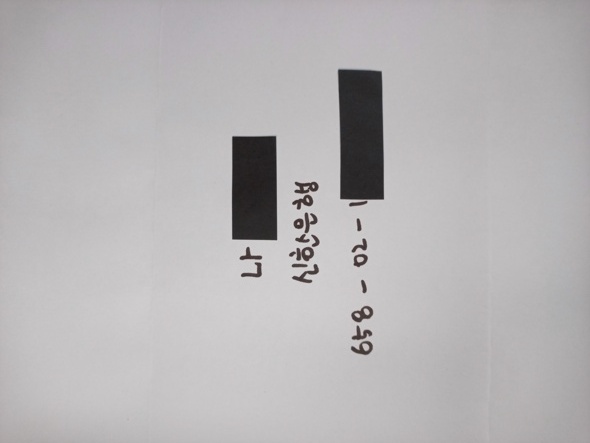 나
신한은행
658 - 02 - 1